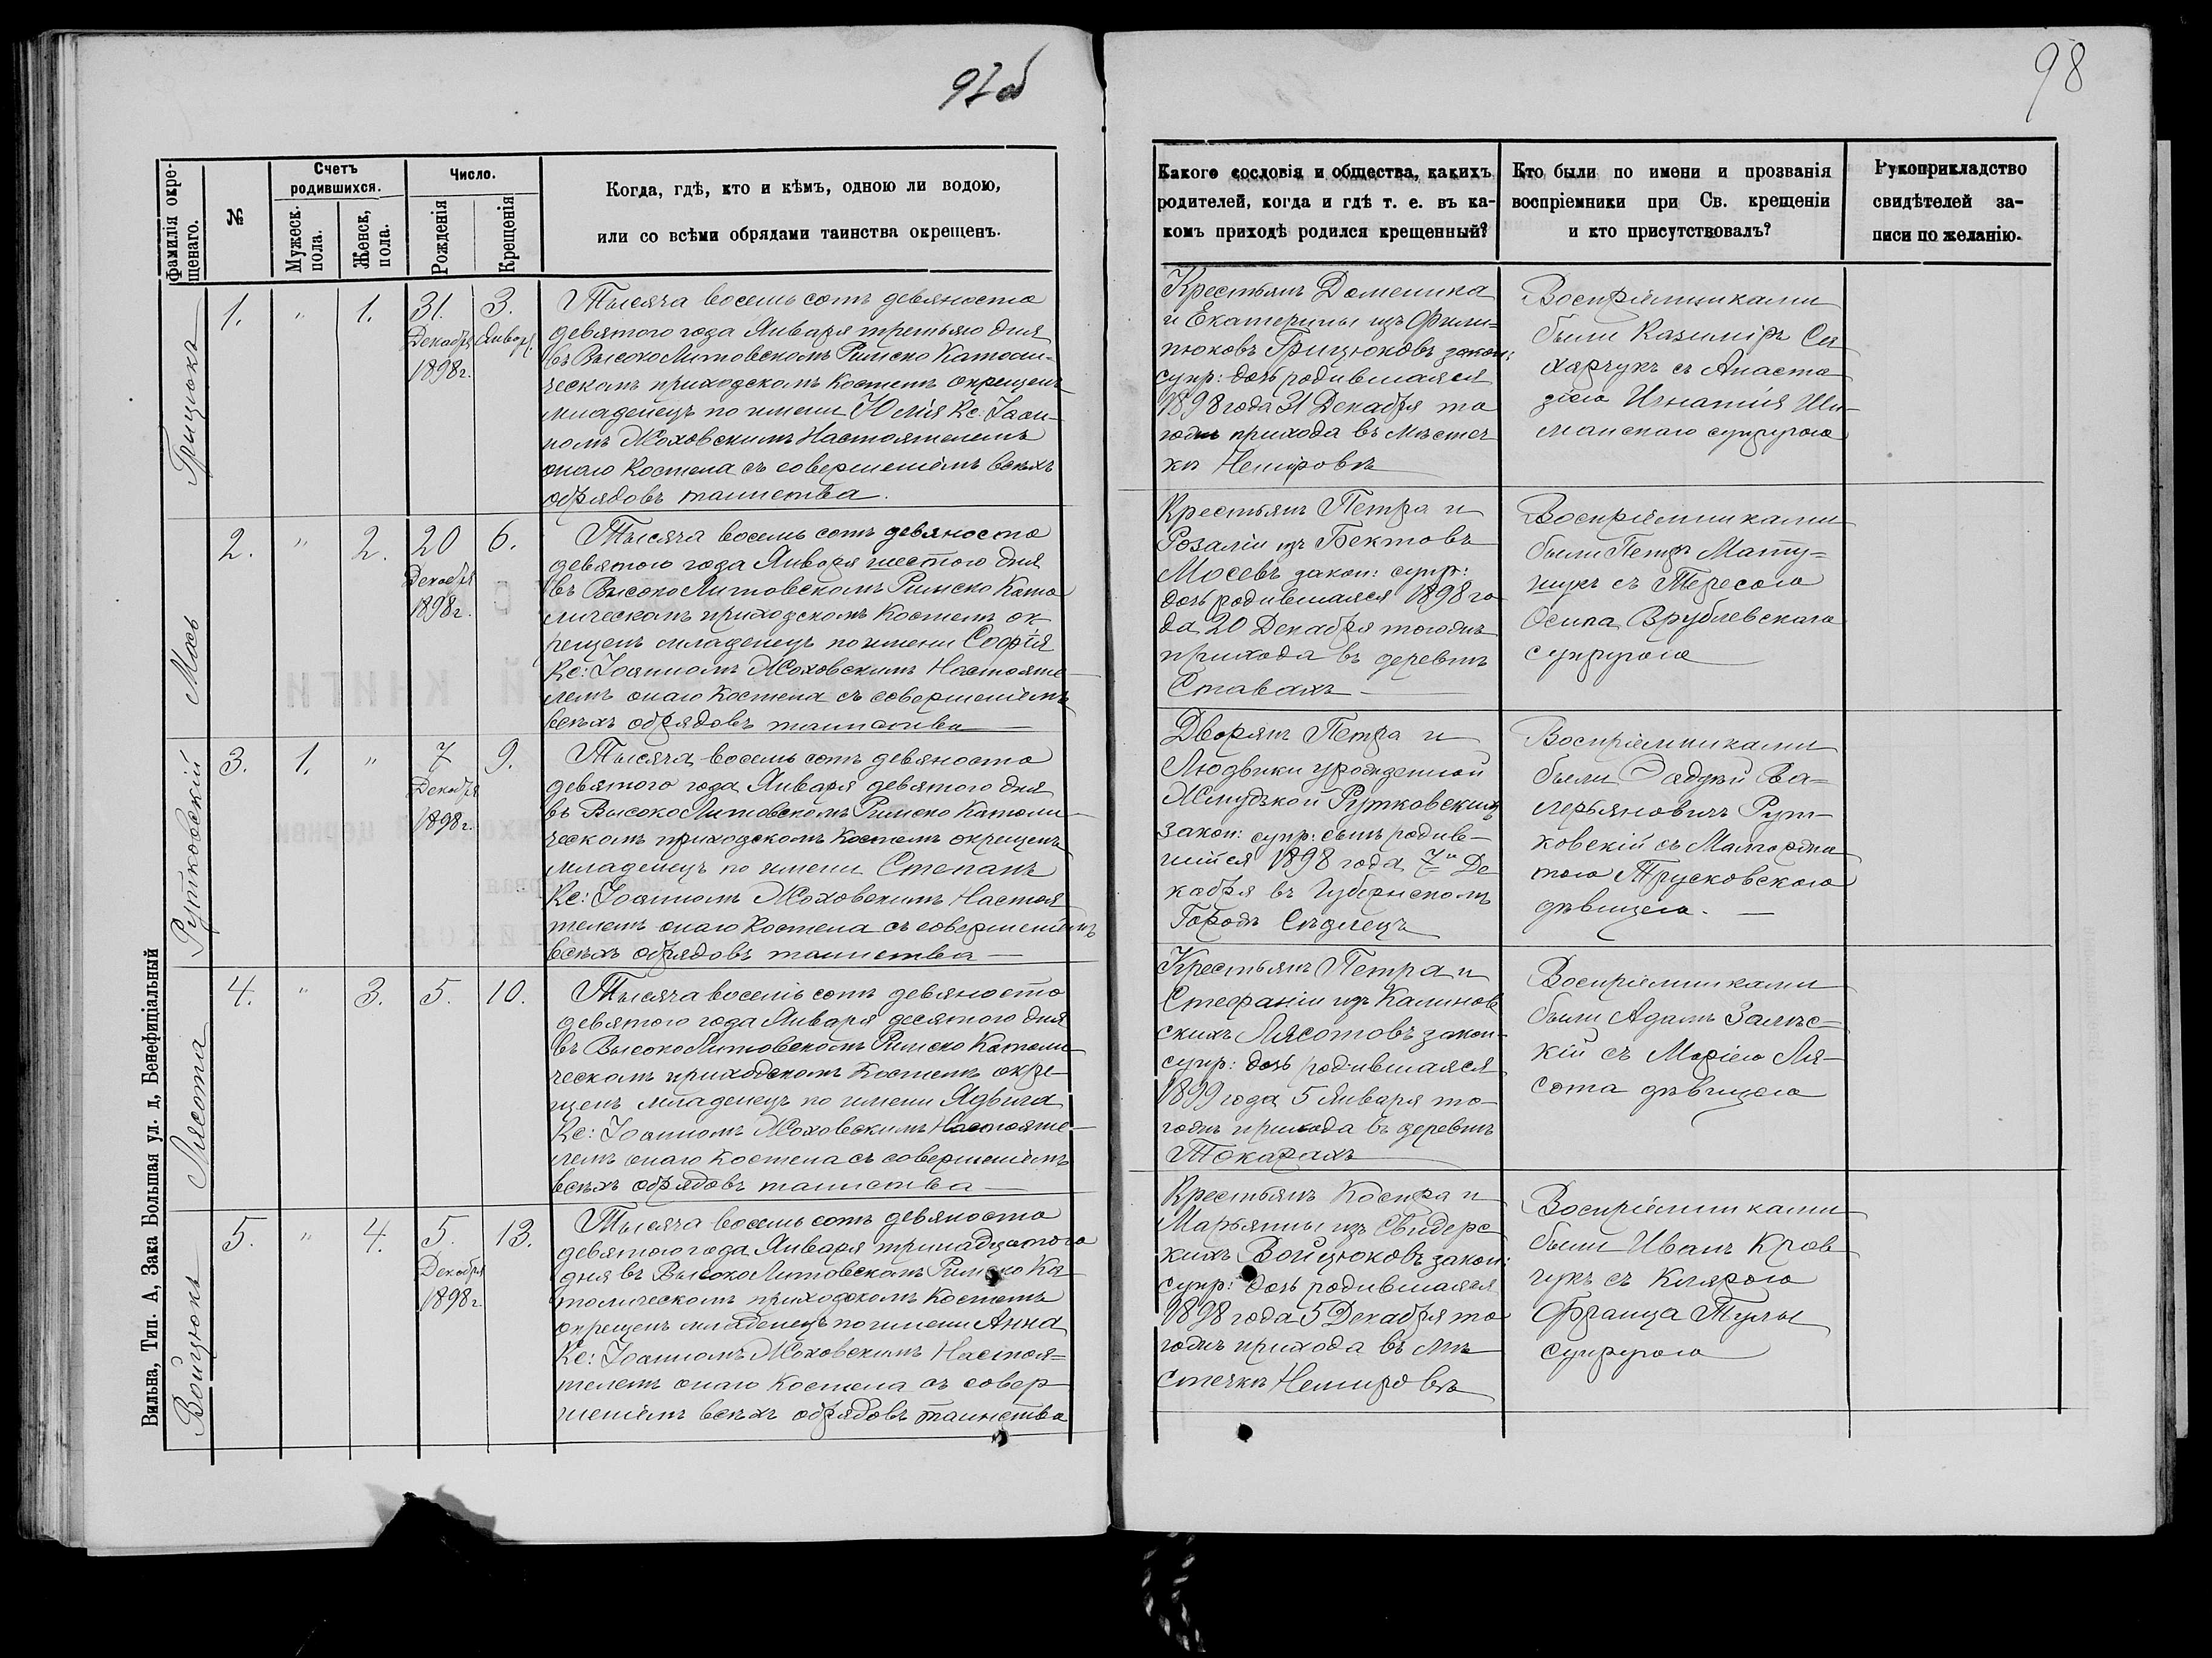 97об
98
Вильна, Тип. А, Зака Большая ул. д, Бенефиціальный
Фамилія окре-
щенаго.
№
Счетъ
родившихся.
Мужеск.
пола.
Женск,
пола.
Число.
Рожденія
Крещенія
Когда, гдѣ, кто и кѣмъ, одною ли водою,
или со всѣми обрядами таинства окрещенъ.
Какого сословія и общества, какихъ
родителей, когда и гдѣ т. е. въ ка-
комъ приходѣ родился крещенный?
Кто были по имени и прозванія
воспріемники при Св. крещеніи
и кто присутствовалъ?
Рукоприкладство
свидѣтелей за-
писи по желанію.
Грицюкъ
1. " 1. 31. 3.
Декабр Январ.
1898г.
Тысяча восемь сотъ девяносто
девятого года Января третьяго дня
въ ВысокоЛитовскомъ Римско Католи-
ческомъ приходскомъ Костелѣ окрещенъ
младенецъ по имени Юлія Кс: Іоан-
номъ Жоховскимъ Настоятелемъ
онаго Костела съ совершеніемъ всѣхъ
обрядовъ таинства.
Крестьянъ Доменика
и Екатерины изъ Фили=
пюковъ Грицюковъ закон:
супр: дочь родившаяся
1898 года 31 Декабря то
годъ прихода въ мѣстеч
кѣ Немировѣ
Воспріемниками
были Казиміръ Са
харчукъ съ Анаста
зіею Игнатія Ши-
манскаго супругою
Мось
2. " 2. 20 6.
Декабря
1898г.
Тысяча восемь сотъ девяносто
девятого года Января шестого дня
въ ВысокоЛитовскомъ Римско Като
лическомъ приходскомъ Костелѣ ок-
рещенъ младенецъ по имени Софія
Кс: Іоанномъ Жоховскимъ Настояте-
лемъ онаго Костела съ совершеніемъ
всѣхъ обрядовъ таинства
Крестьянъ Петра и
Розаліи изъ Бектовъ
Мосевъ закон: супр:
дочь родившаяся 1898 го
да 20 Декабря тогожъ
прихода въ деревнѣ
Ставахъ
Воспріемниками
были Петръ Мату=
щукъ съ Тересою
Осипа Врублевскаго
супругою
Рутковскій
3. 1. " 7 9.
Декабря
1898г.
Тысяча восемь сотъ девяносто
девятого года Января девятого дня
въ ВысокоЛитовскомъ Римско Католи-
ческомъ приходскомъ Костелѣ окрещенъ
младенецъ по имени Степанъ
Кс: Іоанномъ Жоховскимъ Настоя
телемъ онаго Костела съ совершеніемъ
всѣхъ обрядовъ таинства
Дворянъ Петра и
Людвики урожденной
Жмудзкой Рутковскихъ
закон: супр: сынъ родив-
шійся 1898 года 7го Де
кабря въ Губернскомъ
Городѣ Сѣдлецъ
Воспріемниками
были Ва=
лерьяновичъ Рут-
ковскій съ Малгоржа
тою Трусковскою
дѣвицею.
Лясота
4. " 3. 5. 10.
Тысяча восемь сотъ девяносто
девятого года Января десятого дня
въ ВысокоЛитовскомъ Римско Католи
ческомъ приходскомъ Костелѣ окре-
щенъ младенецъ по имени Ядвига
Кс: Іоанномъ Жоховскимъ Настояте-
лемъ онаго Костела съ совершеніемъ
всѣхъ обрядовъ таинства
Крестьянъ Петра и
Стефаніи изъ Калинов
скихъ Лясотовъ закон-
супр: дочь родившаяся
1899 года 5 Января то-
годъ прихода въ деревнѣ
Токарахъ
Воспріемниками
были Адамъ Залѣс=
кій съ Маріею Ля-
сота дѣвицею
Войцюкъ
5. " 4. 5. 13.
Декабря
1898г.
Тысяча восемь сотъ девяносто
девятого года Января тринадцатого
дня въ ВысокоЛитовскомъ Римско Ка
толическомъ приходскомъ Костелѣ
окрещенъ младенецъ по имени Анна
Кс: Іоанномъ Жоховскимъ Настоя=
телемъ онаго Костела съ совер
шеніемъ всѣхъ обрядовъ таинства
Крестьянъ и
Марьянны изъ Свидерс
кихъ Войцюковъ закон:
супр: дочь родившаяся
1898 года 5 Декабря то
годъ прихода въ мѣ
стечкѣ Немировѣ
Воспріемниками
были Иванъ Крав
чукъ съ Клярою
Франца Тулы
супругою